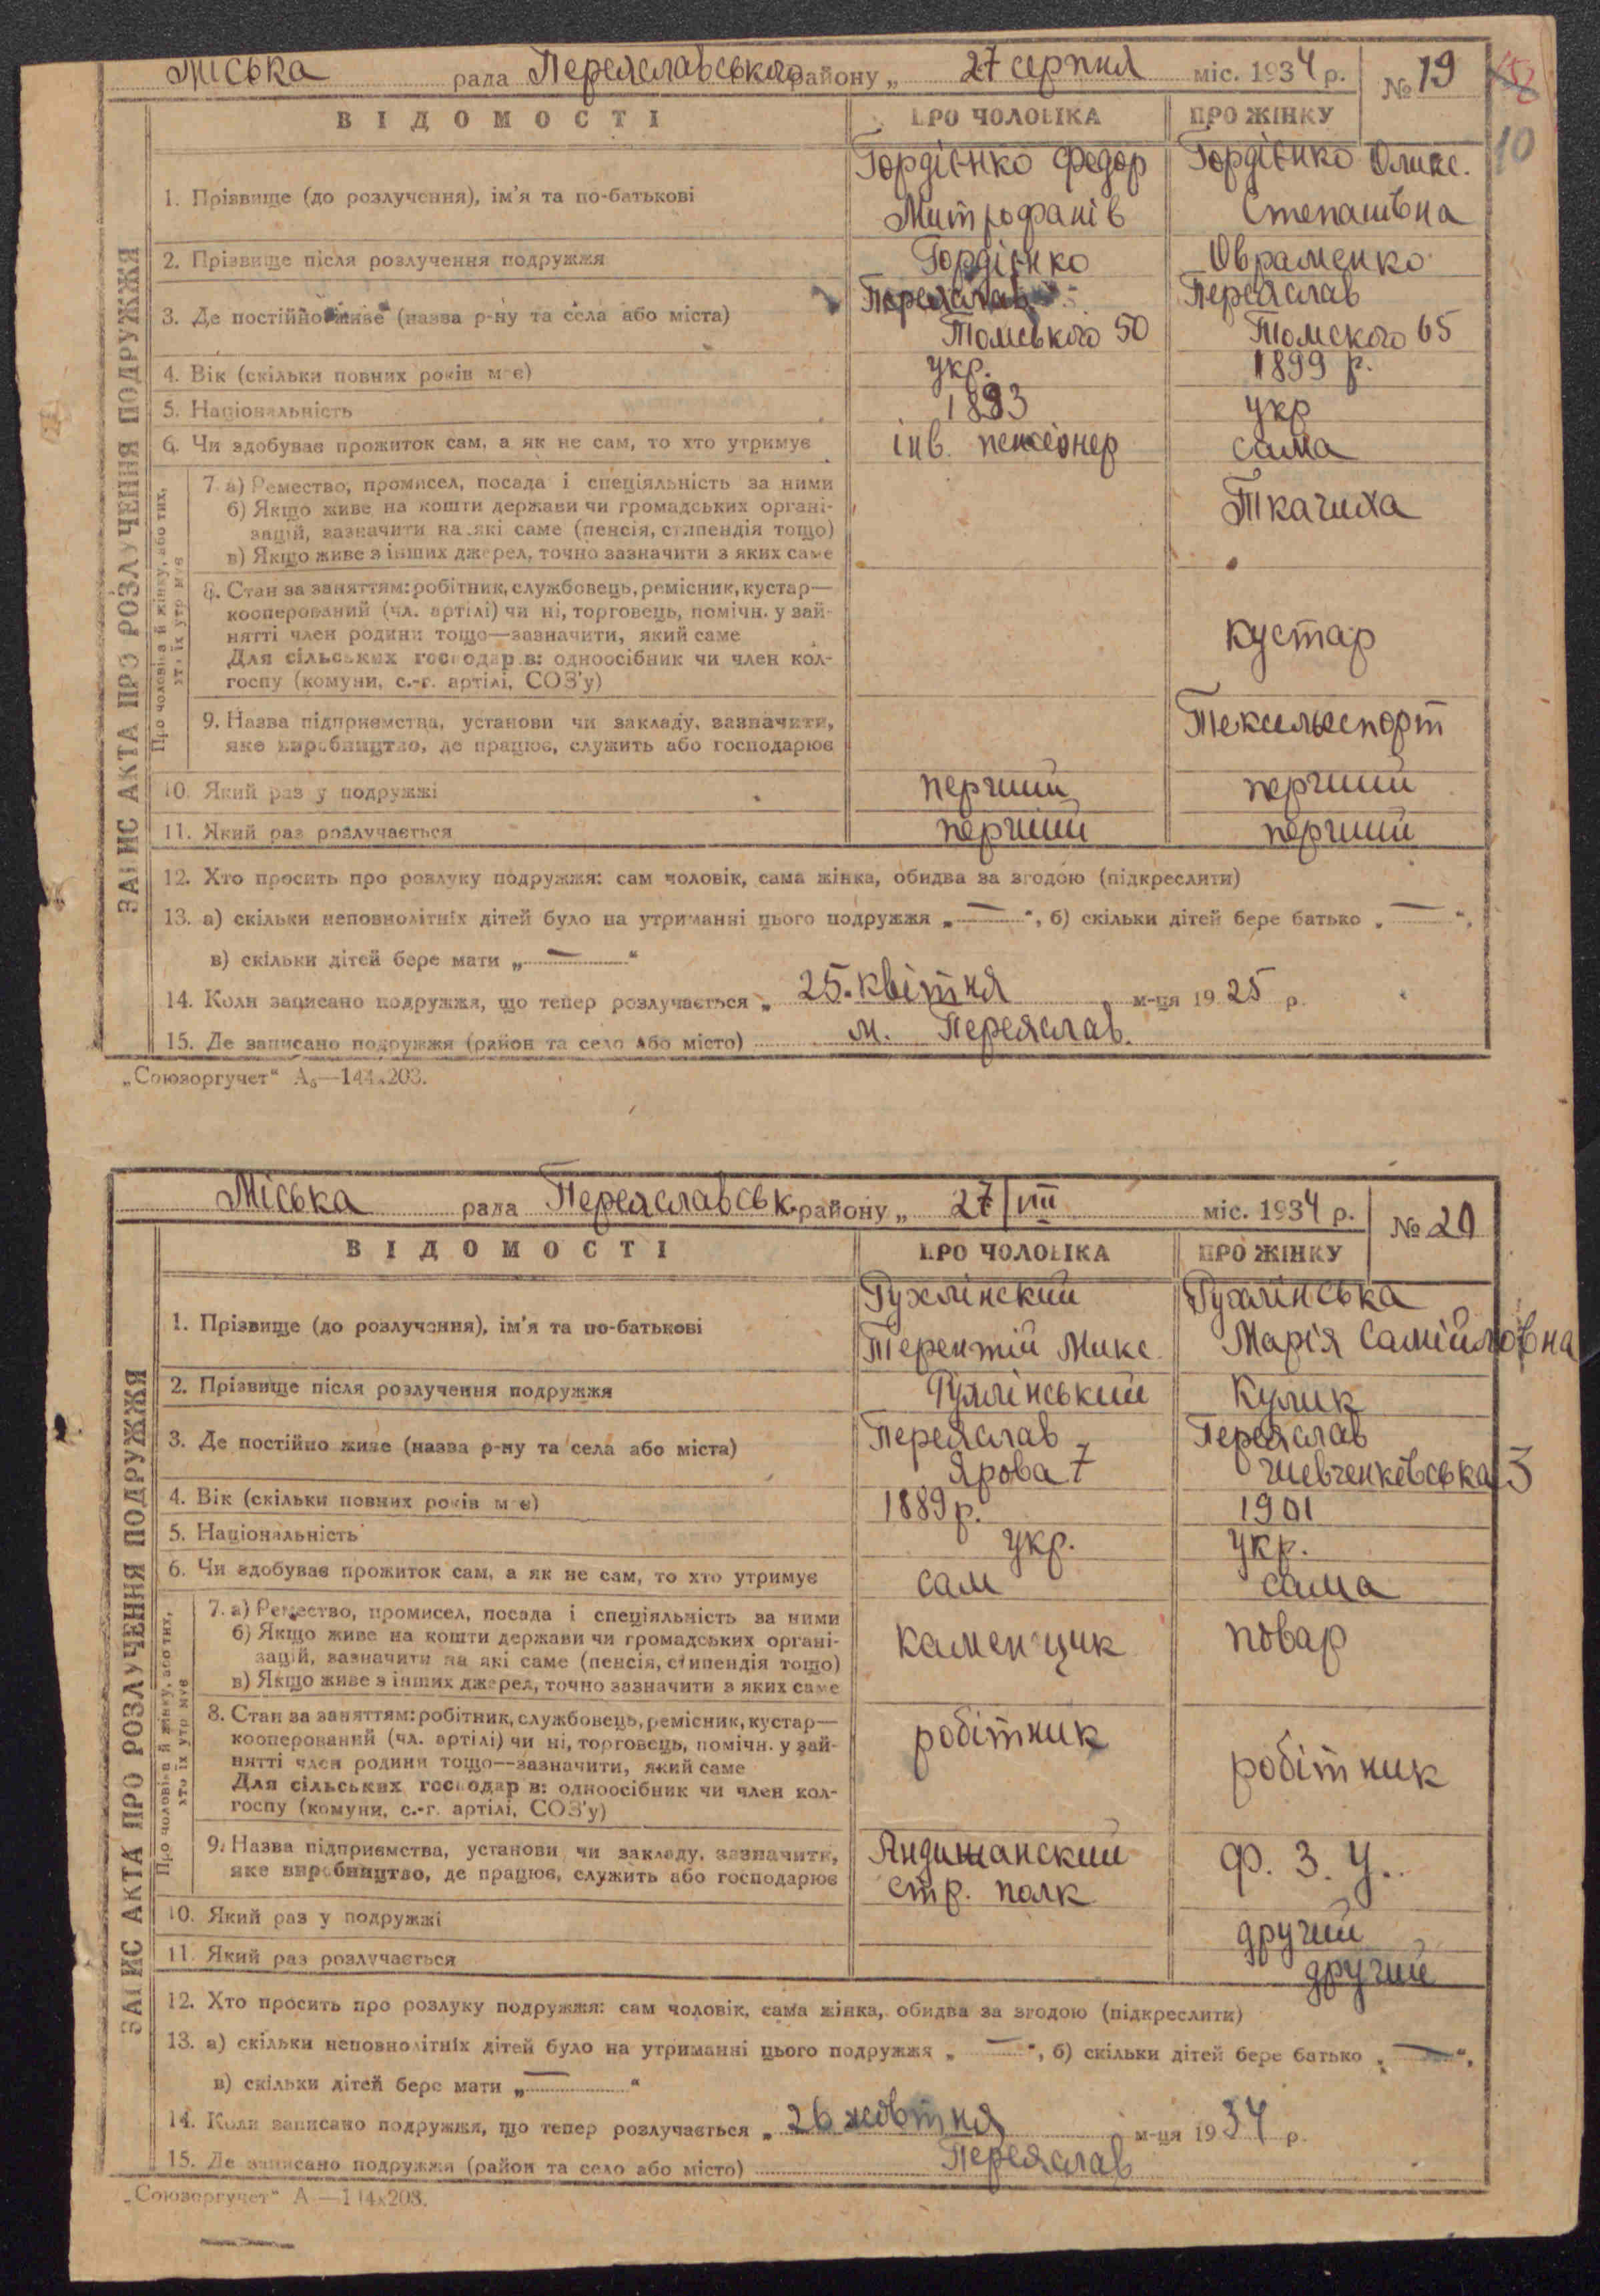 Міська рада Переяславського району „ 27 серпня міс. 1934 р. № 19
10
ВІДОМОСТІ ПРО ЧОЛОВІКА ПРО ЖІНКУ
Гордієнко Федор Гордієнко Оликс.
1. Прізвище (до розлучення), ім'я та по-батькові
Митрофанів Степанівна
2. Прізвище після розлучення подружжя Гордієнко Овраменко
Переяслав Переяслав
3. Де постійно живе (назва р-ну та села або міста)
Томського 50 Томского 65
4. Вік (скільки повних років має) укр. 1899 р.
5. Національність 1893 укр
6. Чи здобуває прожиток сам, а як не сам, то хто утримує інв. пенсіонер сама
7. а) Ремество, промисел, посада і спеціяльність за ними
б) Якщо живе на кошти держави чи громадських органі- Ткачиха
зацій, зазначити на які саме (пенсія, стипендія тощо)
в) Якщо живе з інших джерел, точно зазначити з яких саме
8. Стан за заняттям: робітник, службовець, ремісник, кустар—
кооперований (чл. артілі) чи ні, торговець, помічн. у зай-
нятті член родини тощо—зазначити, який саме кустар
Для сільських господарів: одноосібник чи член кол-
госпу (комуни, с.-г. артілі, СОЗ'у)
9. Назва підприємства, установи чи закладу, зазначити, Тексильеспорт
яке виробництво, де працює, служить або господарює
10. Який раз у подружжі перший перший
11. Який раз розлучається перший перший
12. Хто просить про розлуку подружжя: сам чоловік, сама жінка, обидва за згодою (підкреслити)
13. а) скільки неповнолітніх дітей було на утриманні цього подружжя „ — “, б) скільки дітей бере батько „ — “,
в) скільки дітей бере мати „ — “
14. Коли записано подружжя, що тепер розлучається „ 25. квітня м-ця 1925 р.
15. Де записано подружжя (район та село або місто) м. Переяслав.
„Союзоргучет“ А₅—144x203.
ЗАПИС АКТА ПРО РОЗЛУЧЕННЯ ПОДРУЖЖЯ
Про чоловіка й жінку, або тих,
хто їх утримує
Міська рада Переяславськ. району „ 27/VIII міс. 1934 р. № 20
ВІДОМОСТІ ПРО ЧОЛОВІКА ПРО ЖІНКУ
1. Прізвище (до розлучення), ім'я та по-батькові
Терентій Микс. Марія Самійловна
2. Прізвище після розлучення подружжя Кулик
Переяслав Переяслав
3. Де постійно живе (назва р-ну та села або міста)
Ярова 7 Шевченківська 3
4. Вік (скільки повних років має) 1889 р. 1901
5. Національність укр. укр.
6. Чи здобуває прожиток сам, а як не сам, то хто утримує сам сама
7. а) Ремество, промисел, посада і спеціяльність за ними
б) Якщо живе на кошти держави чи громадських органі- каменщик повар
зацій, зазначити на які саме (пенсія, стипендія тощо)
в) Якщо живе з інших джерел, точно зазначити з яких саме
8. Стан за заняттям: робітник, службовець, ремісник, кустар—
кооперований (чл. артілі) чи ні, торговець, помічн. у зай- робітник
нятті член родини тощо—зазначити, який саме робітник
Для сільських господарів: одноосібник чи член кол-
госпу (комуни, с.-г. артілі, СОЗ'у)
9. Назва підприємства, установи чи закладу, зазначити, Андижанский Ф. З. У..
яке виробництво, де працює, служить або господарює стр. полк
10. Який раз у подружжі другий
11. Який раз розлучається другий
12. Хто просить про розлуку подружжя: сам чоловік, сама жінка, обидва за згодою (підкреслити)
13. а) скільки неповнолітніх дітей було на утриманні цього подружжя „ — “, б) скільки дітей бере батько „ — “,
в) скільки дітей бере мати „ — “
14. Коли записано подружжя, що тепер розлучається „ 26 жовтня м-ця 1934 р.
15. Де записано подружжя (район та село або місто) Переяслав
„Союзоргучет“ А —144x203.
ЗАПИС АКТА ПРО РОЗЛУЧЕННЯ ПОДРУЖЖЯ
Про чоловіка й жінку, або тих,
хто їх утримує